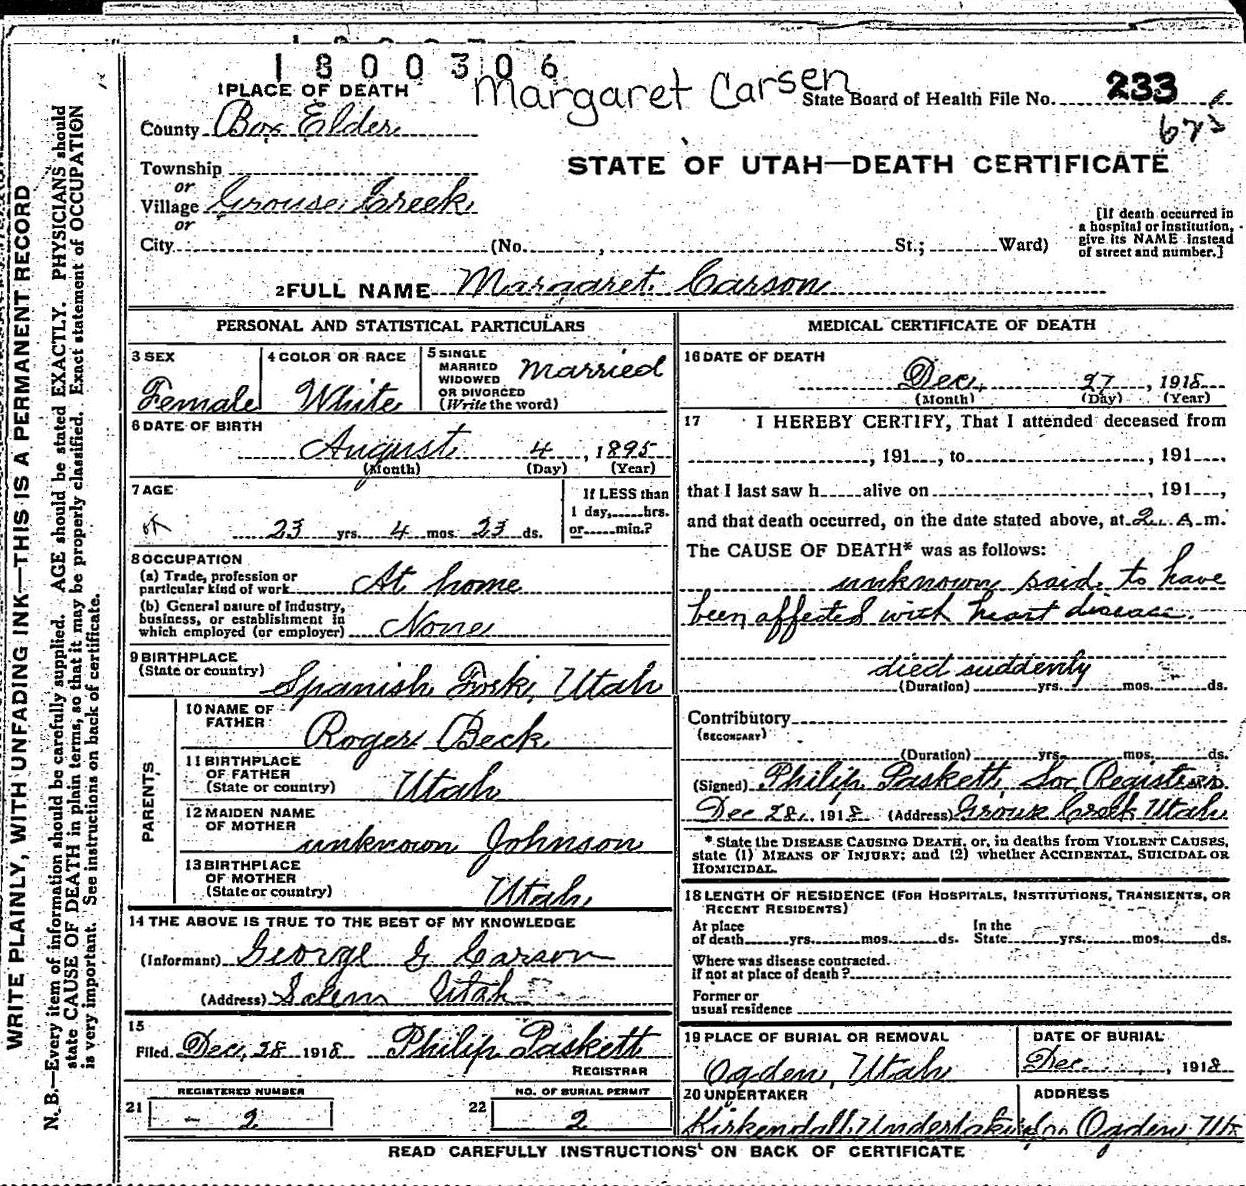 1800306
Margaret Carsen
1 PLACE OF DEATH
State Board of Health File No. 233
County Box Elder
STATE OF UTAH—DEATH CERTIFICATE
Township
or
Village Grouse Creek
or
City (No. , St.; Ward)
[If death occurred in
a hospital or institution,
give its NAME instead
of street and number.]
2 FULL NAME Margaret Carson
PERSONAL AND STATISTICAL PARTICULARS
3 SEX
Female
4 COLOR OR RACE
White
5 SINGLE
MARRIED
WIDOWED
OR DIVORCED
(Write the word)
Married
6 DATE OF BIRTH
August 4, 1895
(Month) (Day) (Year)
7 AGE
23 yrs. 4 mos. 23 ds.
If LESS than
1 day, hrs.
or min.?
8 OCCUPATION
(a) Trade, profession or
particular kind of work At home
(b) General nature of industry,
business, or establishment in
which employed (or employer) None
9 BIRTHPLACE
(State or country) Spanish Fork, Utah
PARENTS
10 NAME OF
FATHER Roger Beck
11 BIRTHPLACE
OF FATHER
(State or country) Utah
12 MAIDEN NAME
OF MOTHER unknown Johnson
13 BIRTHPLACE
OF MOTHER
(State or country) Utah
14 THE ABOVE IS TRUE TO THE BEST OF MY KNOWLEDGE
(Informant) George G Carson
(Address) Salem Utah
15
Filed Dec, 28 1918 Philip Paskett
REGISTRAR
REGISTERED NUMBER
21 - 2
NO. OF BURIAL PERMIT
22 2
MEDICAL CERTIFICATE OF DEATH
16 DATE OF DEATH
Dec. 27, 1918
(Month) (Day) (Year)
17 I HEREBY CERTIFY, That I attended deceased from
, 191 , to , 191 ,
that I last saw h alive on , 191 ,
and that death occurred, on the date stated above, at 2 A.m.
The CAUSE OF DEATH* was as follows:
unknown said to have
been affected with heart disease.
died suddenly
(Duration) yrs. mos. ds.
Contributory
(SECONDARY)
(Duration) yrs. mos. ds.
(Signed) Philip Paskett, Loc Registrar
Dec 28, 1918 (Address) Grouse Creek Utah
* State the DISEASE CAUSING DEATH, or, in deaths from VIOLENT CAUSES,
state (1) MEANS OF INJURY; and (2) whether ACCIDENTAL, SUICIDAL OR
HOMICIDAL.
18 LENGTH OF RESIDENCE (FOR HOSPITALS, INSTITUTIONS, TRANSIENTS, OR
RECENT RESIDENTS)
At place
of death yrs. mos. ds.
In the
State yrs. mos. ds.
Where was disease contracted.
if not at place of death?
Former or
usual residence
19 PLACE OF BURIAL OR REMOVAL
Ogden, Utah
DATE OF BURIAL
Dec. , 1918
20 UNDERTAKER
ADDRESS
Ogden Ut
READ CAREFULLY INSTRUCTIONS ON BACK OF CERTIFICATE
WRITE PLAINLY, WITH UNFADING INK—THIS IS A PERMANENT RECORD
N. B.—Every item of information should be carefully supplied. AGE should be stated EXACTLY. PHYSICIANS should
state CAUSE OF DEATH in plain terms, so that it may be properly classified. Exact statement of OCCUPATION
is very important. See instructions on back of certificate.